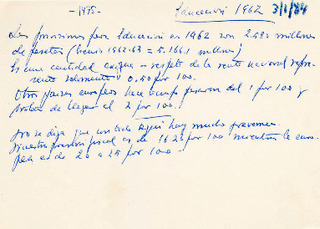 -1975- Educación 1962 3/1/84
Las previsiones para Educación en 1962 son 2.482 millones
de pesetas (bienio 1962-63 = 5.166,1 millones)
Es una cantidad exigua - respecto de la renta nacional repre-
senta solamente 0,50 por 100.
Otros países europeos hace tiempo pasaron del 1 por 100 y
tratan de llegar al 2 por 100.
No se diga que en todo aquí hay mucho
nuestra presión fiscal es de 16,22 por 100 mientras la euro-
pea es de 20 a 25 por 100.